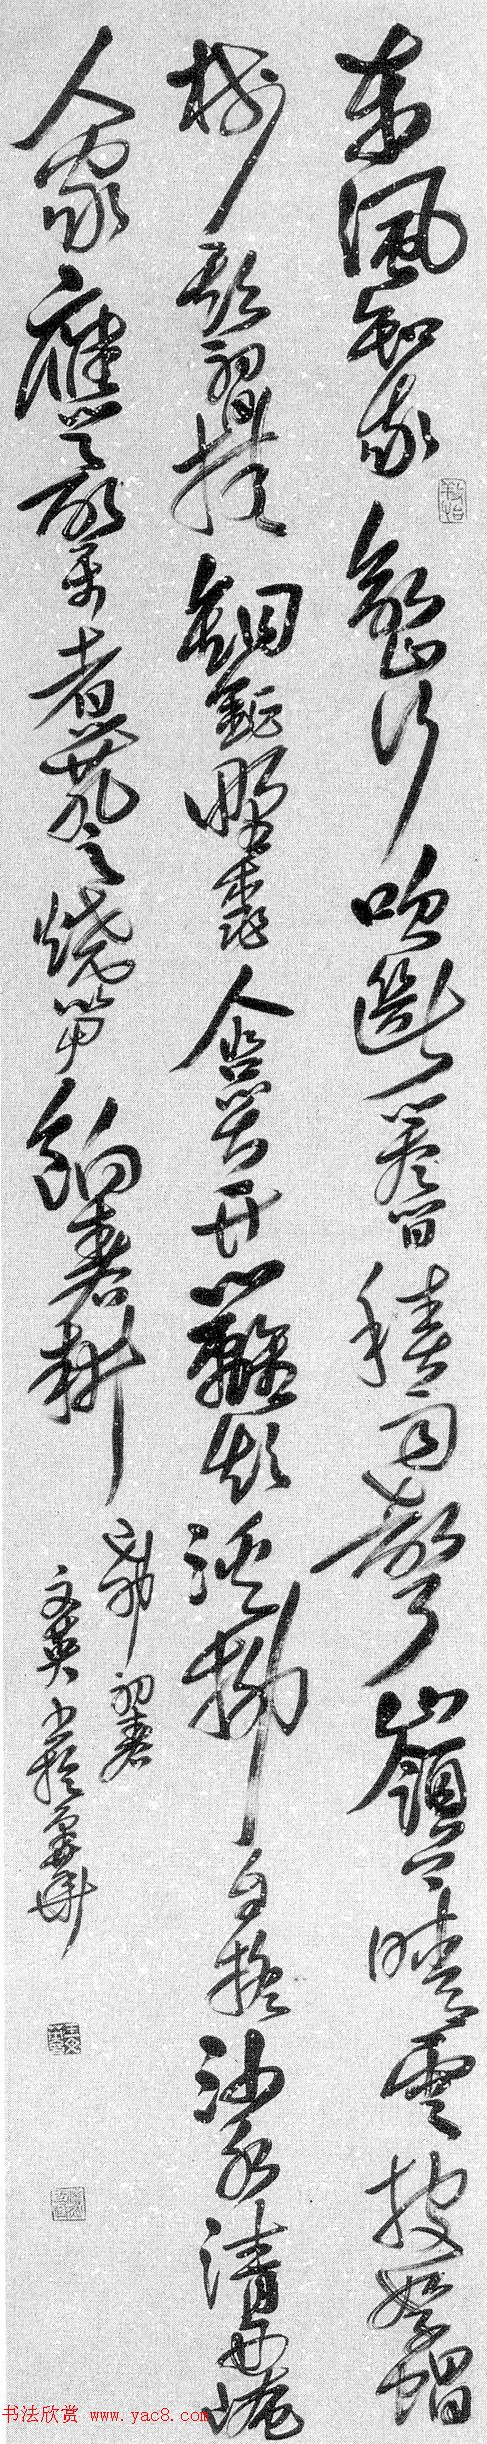 東風知我欲山行吹斷簷間積雨聲嶺上晴雲披絮帽
樹頭初日掛銅鉦野桃含笑竹籬短溪柳自搖沙水清西崦
人家應最樂煮芹燒筍餉春耕
初春
文英
书法欣赏 www.yac8.com